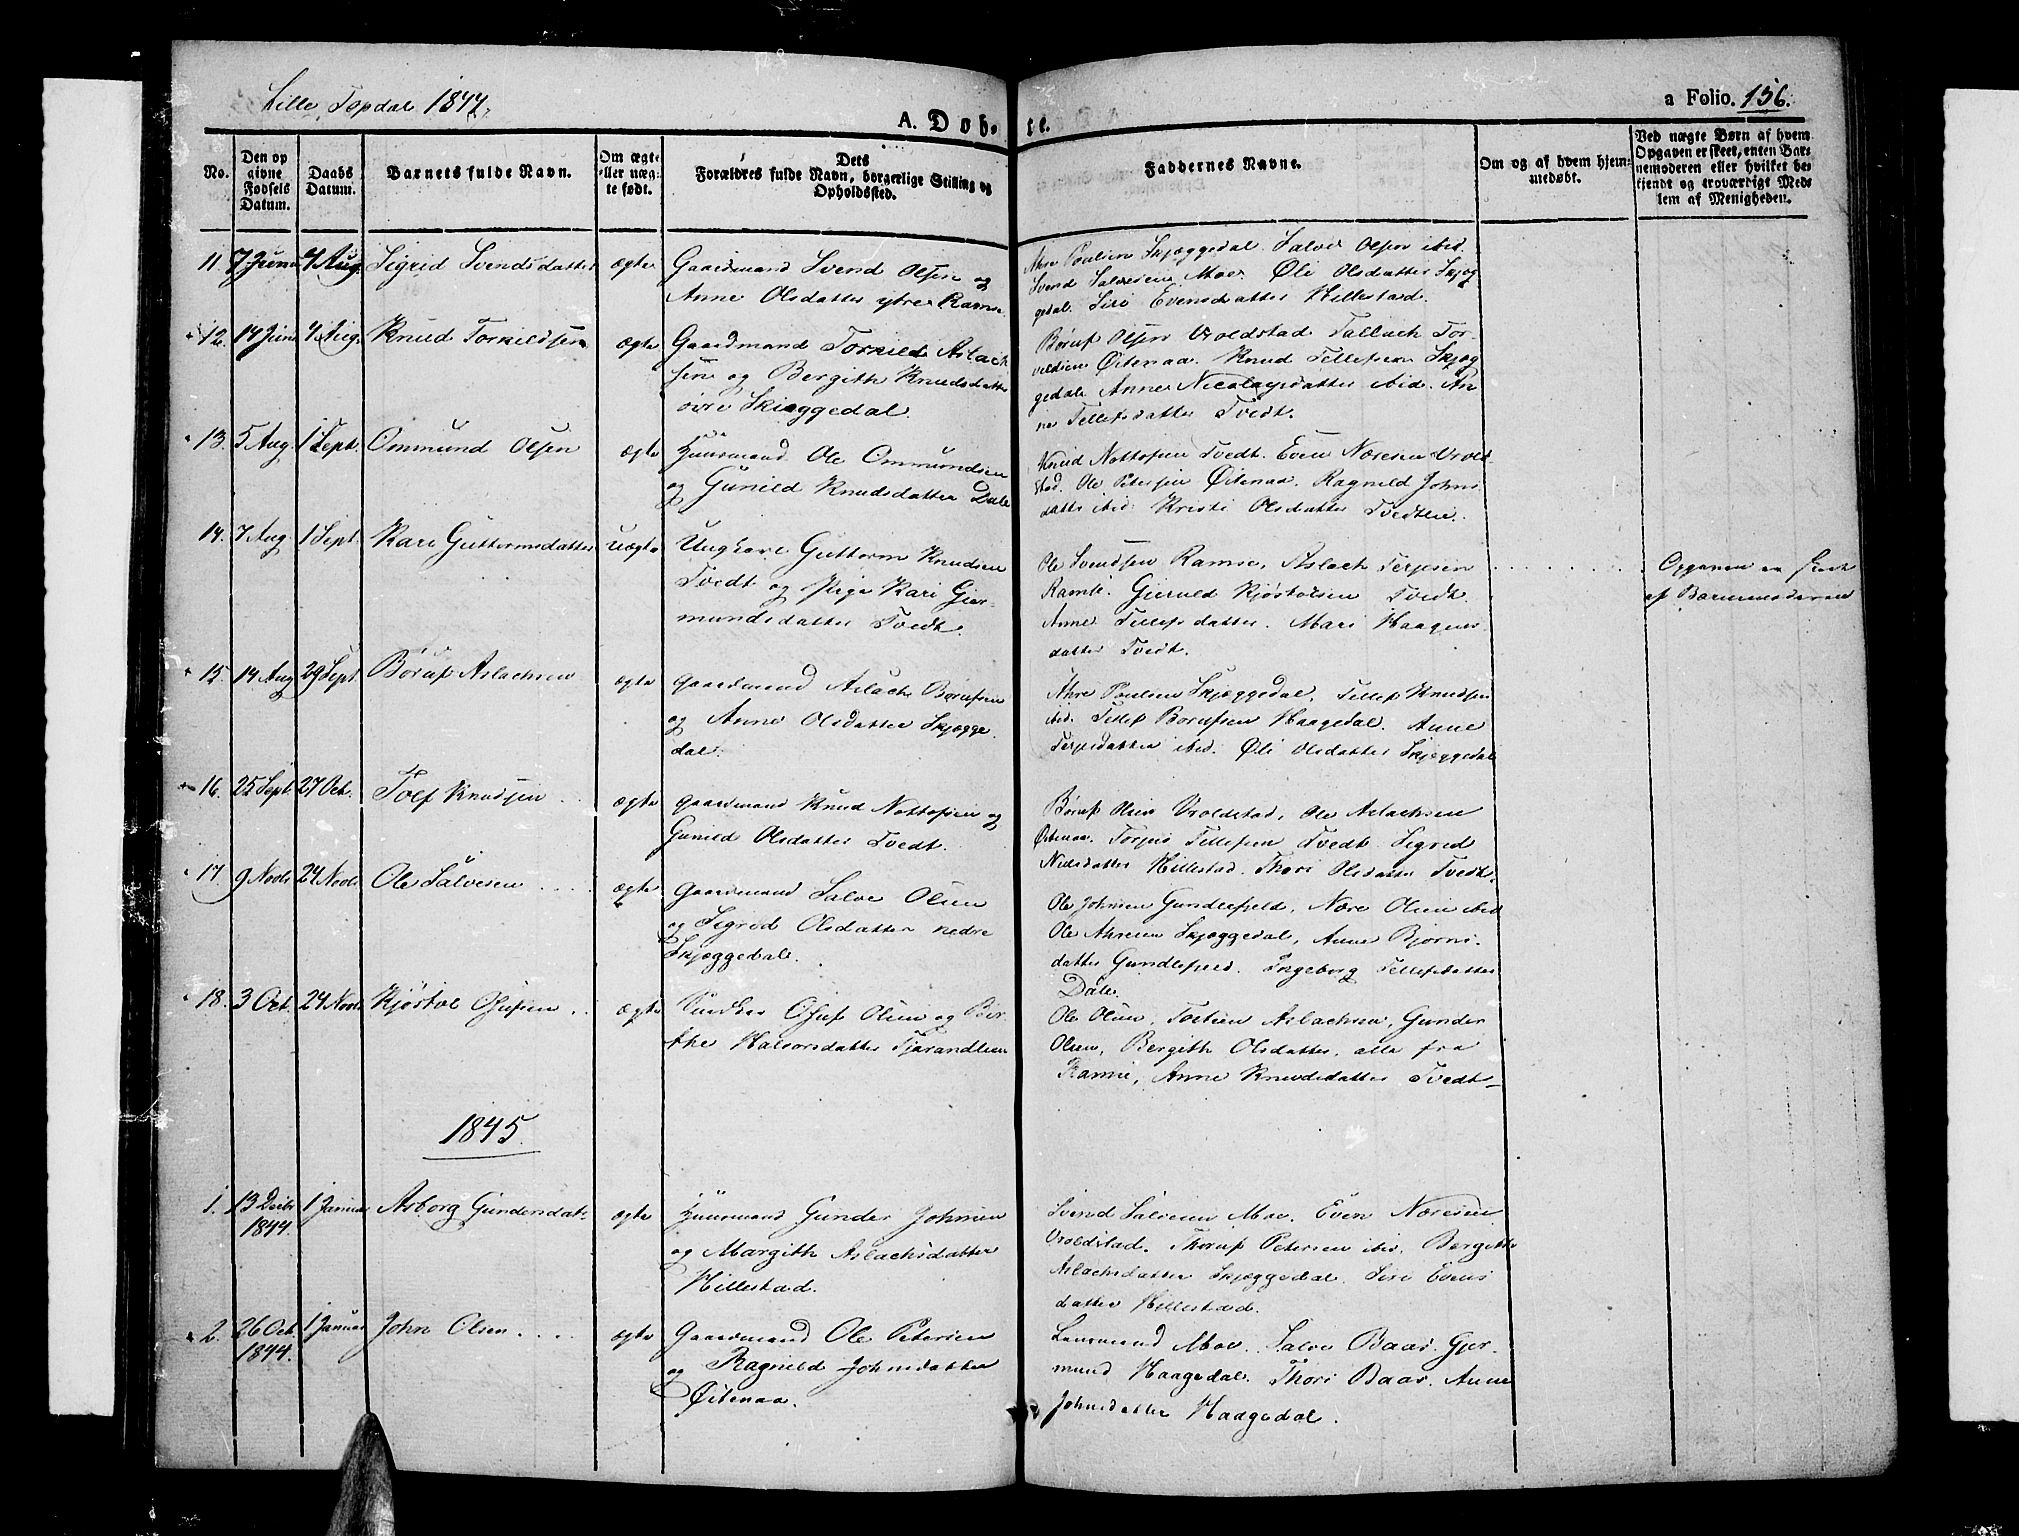 Lille Topdal 1844.
a Folio. 156.
A. Døb-
te.
No.
Den op
givne
Fødsels
Datum.
Daabs
Datum.
Barnets fulde Navn.
Om ægte
eller uæg-
te født.
Dets
Forældres fulde Navn, borgerlige Stilling og
Opholdssted.
Faddernes Navne.
Om og af hvem hjem-
medøbt.
Ved uægte Børn af hvem
Opgaven er skeet, enten Bar-
nemoderen eller hvilket be-
kjendt og troværdigt Med-
lem af Menigheden.
11 7 Juni 4 Aug. Sigrid Svendsdatter ægte Gaardmand Svend Olsen og
Anne Olsdatter ytre Ramse.
Ahre Poulsen Skjæggedal. Salve Olsen ibid.
Svend Salvesen Moe. Øli Olsdatter Skjæg
gedal. Siri Evensdatter Hillestad.
12. 14 Juni 4 Aug. Knud Torkildsen ægte Gaardmand Torkild Aslach
sen og Bergith Knudsdatter
øvre Skjæggedal
Børup Olsen Vroldstad. Tallach Tor-
kildsen Øitenaa. Knud Tellefsen Skjæg
gedal. Anne Nicolaysdatter ibid. An
ne Tellefsdatter Tvedt.
13. 5 Aug. 1 Sept. Ommund Olsen ægte Huusmand Ole Ommundsen
og Gunild Knudsdatter Dale
Knud Nottofsen Tvedt. Even Næresen Vrold-
stad. Ole Petersen Øitenaa. Ragnild Johns
datter ibid. Kristi Olsdatter Tvedtlie.
14. 7 Aug 1 Sept. Kari Guttormsdatter uægte Ungkarl Guttorm Knudsen
Tvedt og Pige Kari Gjer-
mundsdatter Tvedt.
Ole Svendsen Ramse, Aslach Terjesen
Ramse. Gieruld Kjøstolsen Tvedt.
Anne Tellefsdatter. Mari Haagens
datter Tvedt.
Opgaven er skeet
af Barnemoderen
15. 14 Aug 29 Sept. Børup Aslachsen ægte Gaardmand Aslach Børupsen
og Anne Olsdatter Skjægge
dal.
Ahre Poulsen Skjæggedal. Tellef Knudsen
ibid. Tellef Børupsen Haagedal. Anne
Terjesdatter ibid. Øli Olsdatter Skjæggedal
16. 25 Sept. 27 Oct. Tolf Knudsen ægte Gaardmand Knud Nottofsen og
Gunild Olsdatter Tvedt.
Børup Olsen Vroldstad, Ole Aslachsen
Øitenaa. Torjus Tellefsen Tvedt. Sigrid
Nielsdatter Hillestad. Thori Olsdatter Tvedt.
17 9 Novbr 24 Novbr Ole Salvesen ægte Gaardmand Salve Olsen
og Sigrid Olsdatter nedre
Skjæggedal.
Ole Johnsen Gundersfield, Nære Olsen ibid
Ole Ahresen Skjæggedal, Anne Bjørns-
datter Gundlefield. Ingeborg Tellefsdatter
Dale.
18. 3 Oct. 24 Novbr Kjøstol Osufsen ægte Osuf Olsen og Bir-
the Halvorsdatter Tjørandlien
Ole Olsen, Tosten Aslachsen, Gunder
Olsen, Bergith Olsdatter, alle fra
Ramse, Anne Knudsdatter Tvedt
1845.
1. 13 Decbr 1 Januar Asborg Gundersdat. ægte Huusmand Gunder Johnsen
1844.
og Margith Aslachsdatter
Hillestad.
Svend Salvesen Moe. Even Næresen
Vroldstad. Thorup Petersen ibid. Bergith
Aslachsdatter Skjæggedal. Siri Evens
datter Hillestad.
2. 26 Oct. 1 Januar John Olsen ægte Gaardmand Ole Petersen
1844.
og Ragnild Johnsdatter
Øitenaa.
Lensmand Moe. Salve Baas. Gjer-
mund Haagedal. Thori Baas. Anne
Johnsdatter Haagedal.